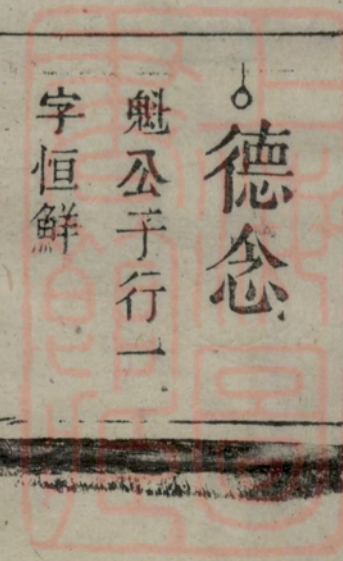 德念
魁公子行一
字恒鮮